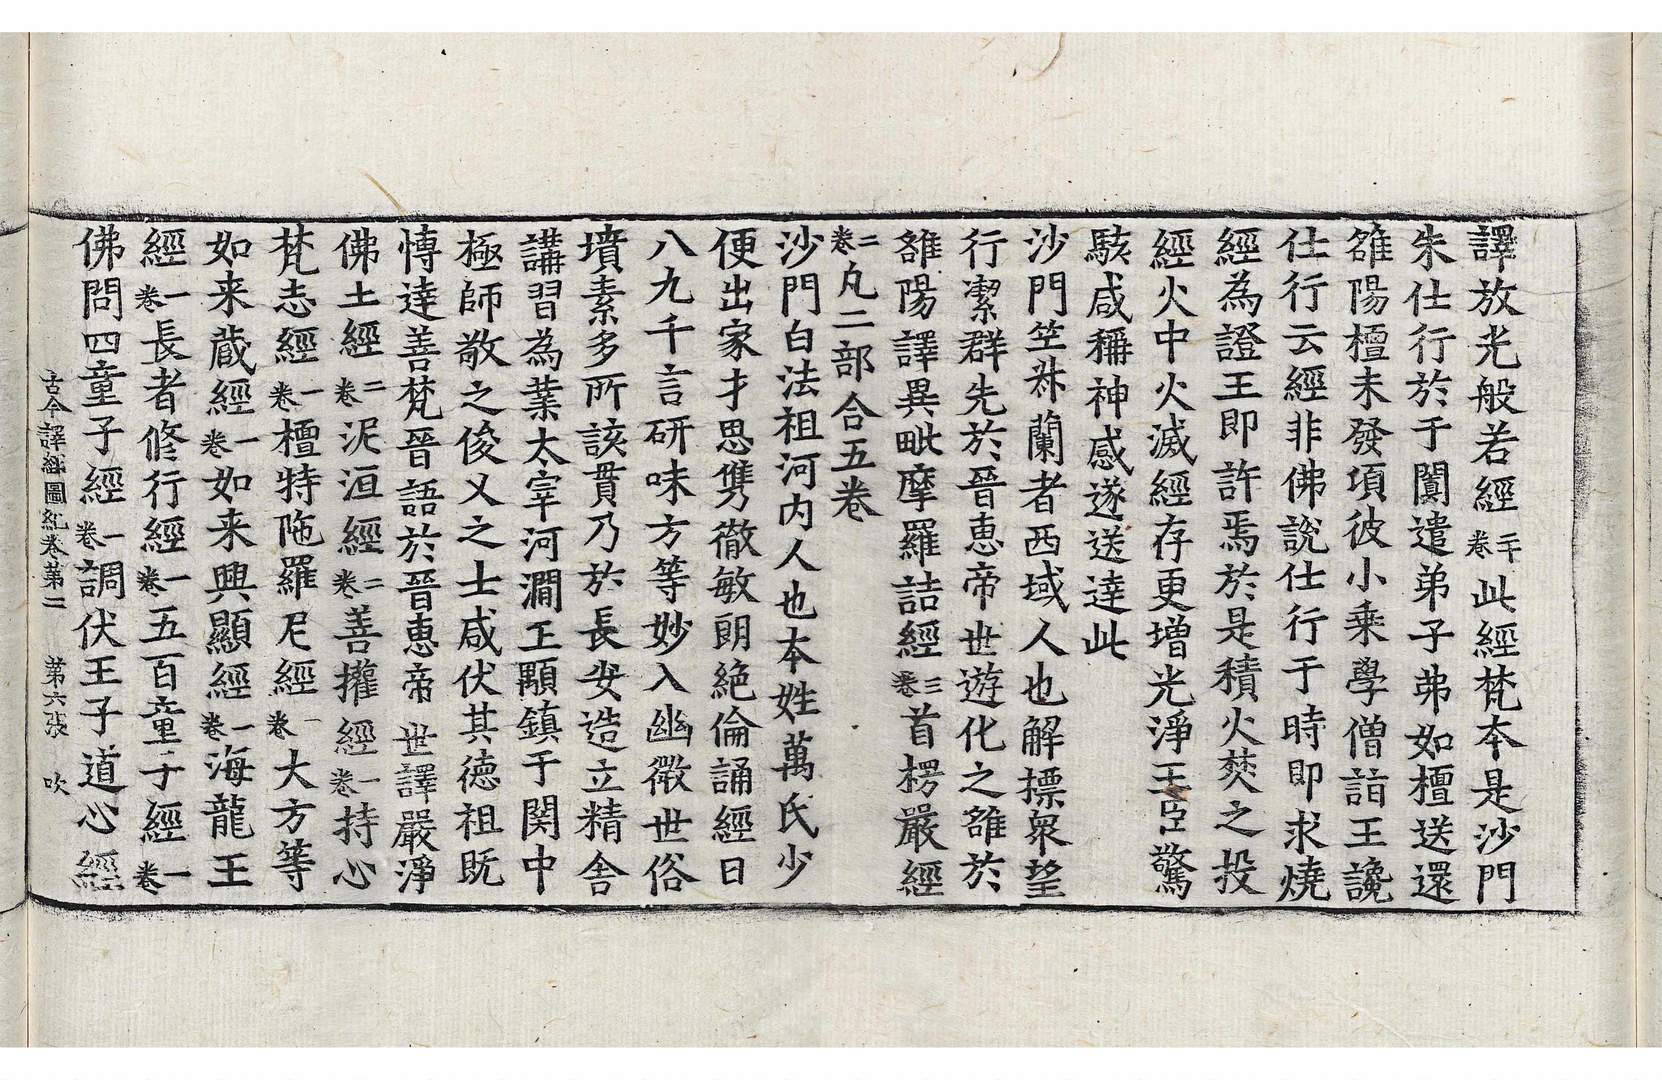 譯放光般若經二十卷此經梵本是沙門
朱仕行於于闐遣弟子弗如檀送還
雒陽檀未發項彼小乘學僧詣王讒
仕行云經非佛說仕行于時即求燒
經為證王即許焉於是積火焚之投
經火中火滅經存更增光淨王臣驚
駭咸稱神感遂送達此
沙門竺𭀠蘭者西域人也解摽衆望
行潔群先於晉惠帝世遊化之雒於
雒陽譯異毗摩羅詰經三卷首楞嚴經
二卷凡二部合五卷
沙門白法祖河內人也本姓萬氏少
便出家才思雋徹敏朗絶倫誦經日
八九千言研味方等妙入幽微世俗
墳素多所該貫乃於長安造立精舍
講習為業太宰河澗王顒鎮于関中
極師敬之俊乂之士咸伏其德祖既
愽達善梵晉語於晉惠帝世譯嚴淨
佛土經二卷泥洹經二卷善攉經一卷持心
梵志經一卷檀特陁羅尼經一卷大方等
如来蔵經一卷如来興顯經一卷海龍王
經一卷長者修行經一卷五百童子經一卷
佛問四童子經一卷調伏王子道心經
古今譯經圖紀卷第二 第六張 吹